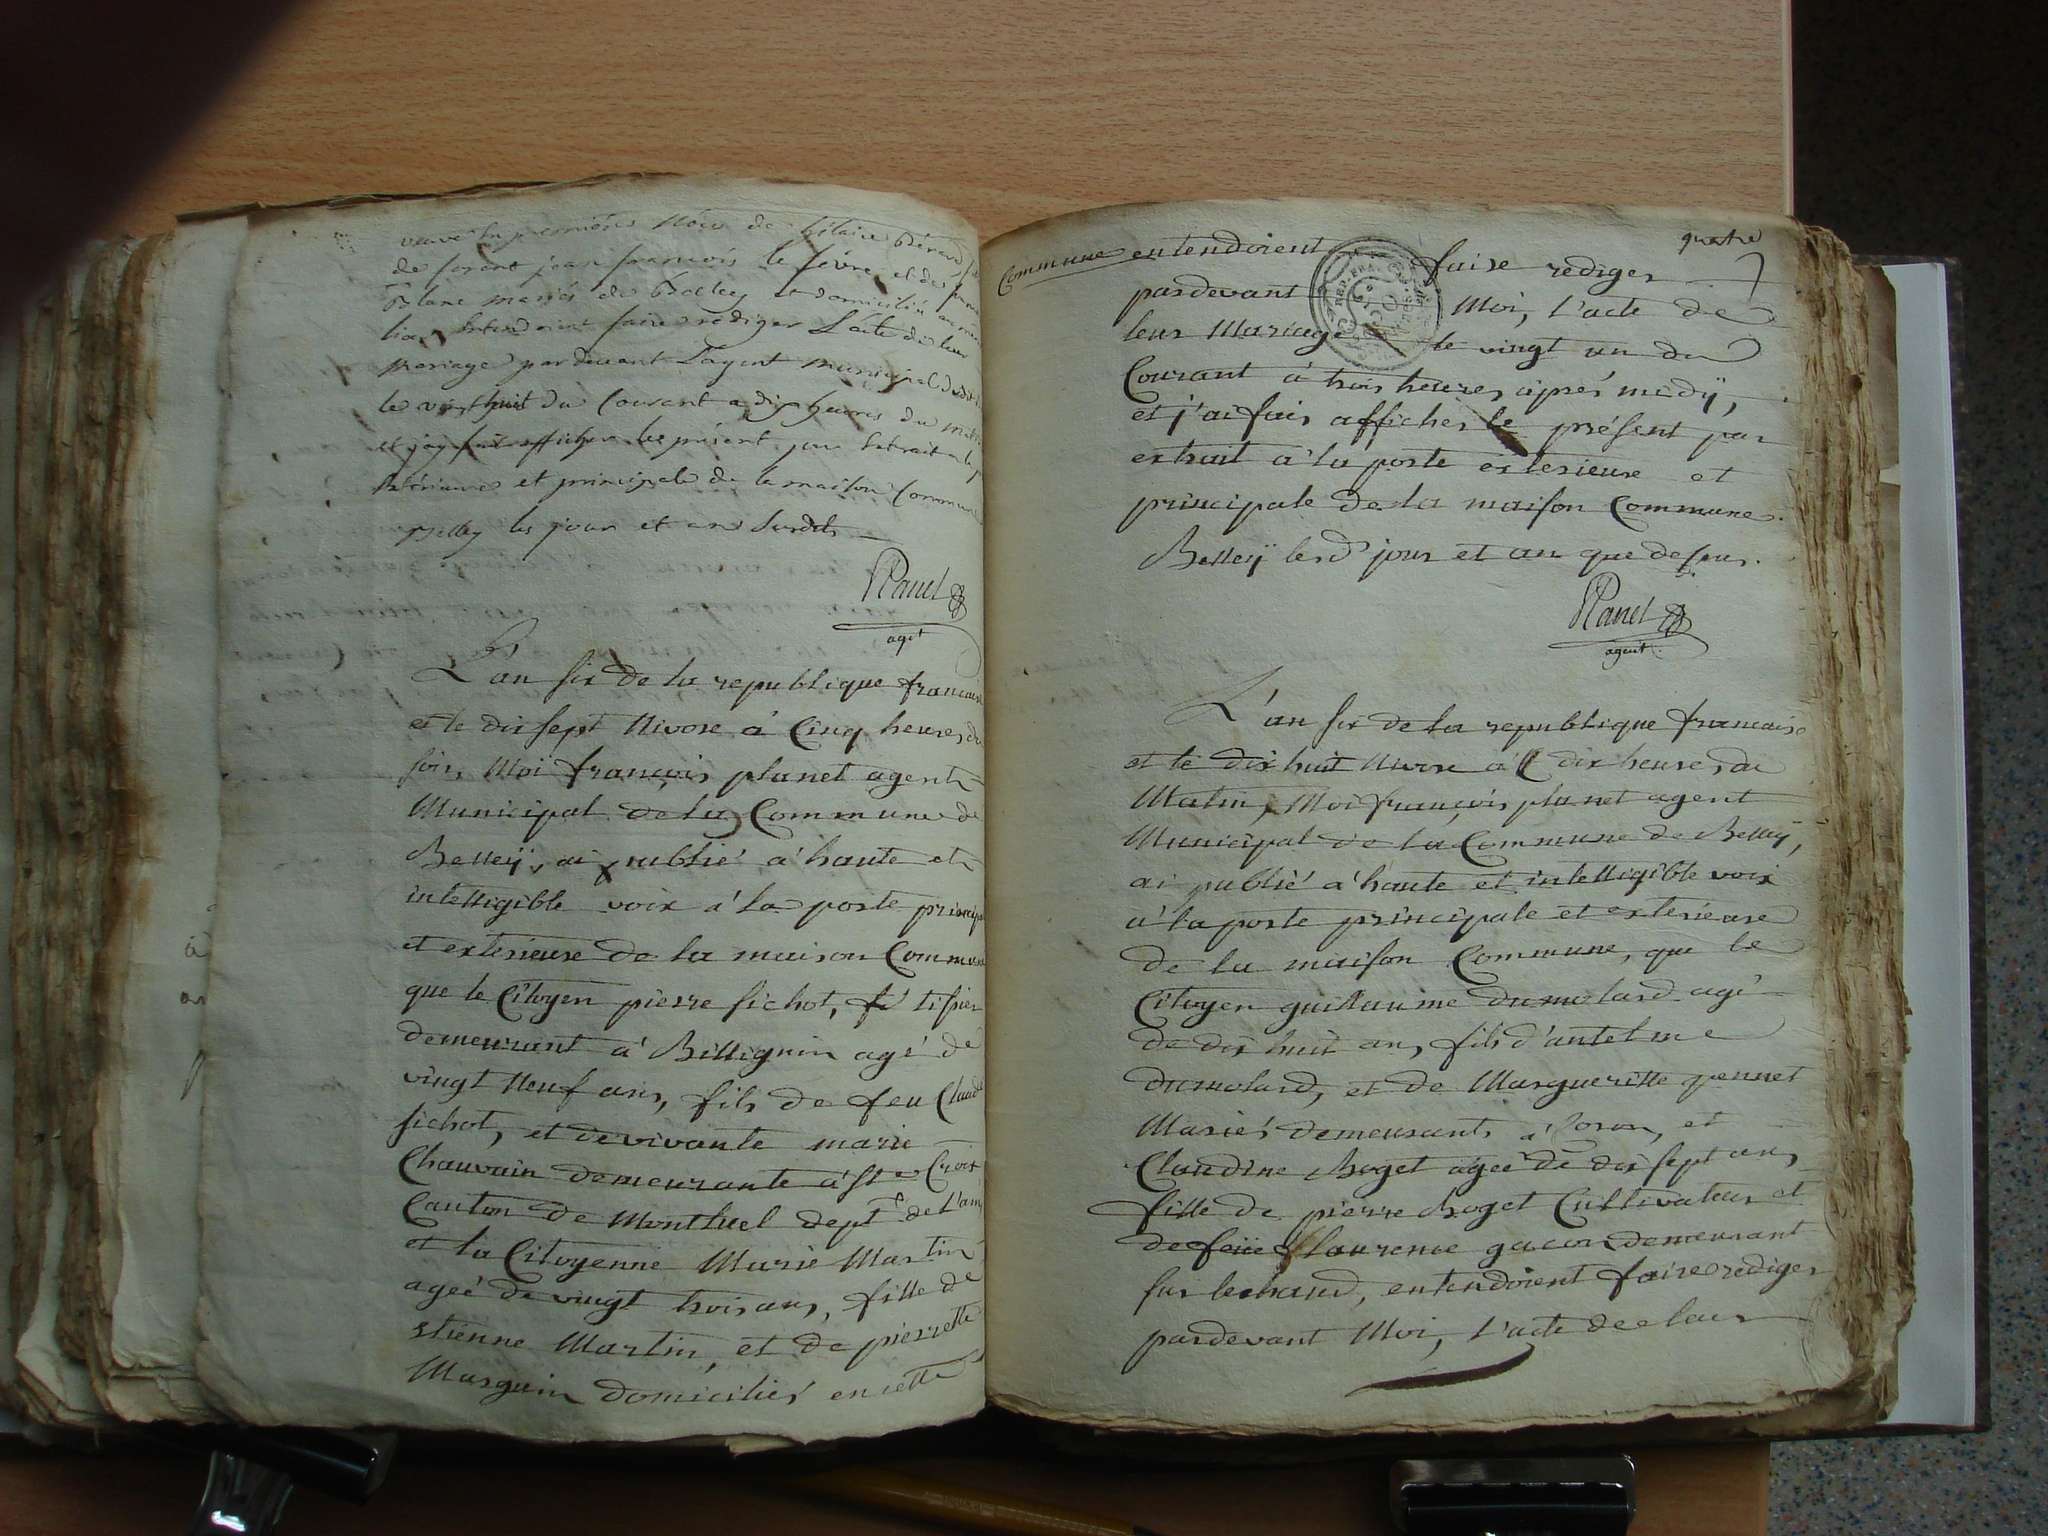 veuve en premières Noces de hilaire
de forent jean françois le fèvre et de
Blanc mariés de Belley et domiciliée au
lieu Entendoient faire rediger L'acte de leur
Mariage par devant L'agent municipal
le vingt huit du Courant a dix heures du
et j'ay fait afficher le présent par Extrait a la
Extérieure et principale de la maison Commune
Belley les jour et an Susdits
Planet
agt
L'an six de la republique francaise
et le dix sept Nivose á Cinq heures du
soir, Moi françois planet agent
Municipal de la Commune de
Belleÿ, ai publié á haute et
intelligible voix á la porte princip
et exterieure de la maison Commune
que le Citoyen pierre sichot, tissier
demeurant á Billignin agé de
vingt Neuf ans, fils de feu Claude
sichot, et de vivante marie
Chauvain demeurante á ste Croix
Canton de Montluel dept de l'ain
et la Citoyenne Marie Martin
ageé de vingt trois ans, fille de
etienne Martin, et de pierrette
Masguin domiciliés en cette
quatre
Commune entendoient faire rediger
pardevant Moi, l'acte de
leur Mariage le vingt un du
Courant á trois heures aprés midÿ,
et j'ai fais afficher le présent par
extrait a la porte exterieure et
principale de la maison Commune.
Belleÿ lesd jour et an que dessus.
Planet
agent
L'an six de la republique francaise
et le dix huit Nivose á dix heures du
Matin, Moi françois planet agent
Municipal de la Commune de Belleÿ,
ai publié á haute et intelligible voix
á la porte principale et exterieure
de la maison Commune, que le
Citoyen guillaume dumolard agé
de dix huit ans, fils d'antelme
dumolard, et de Margueritte pennet
Mariés demeurants á Coron, et
Claudine Boget ageé de dix sept ans
fille de pierre Boget Cultivateur et
de feüe laurence gacon demeurant
sur lechaud, entendoient faire rediger
pardevant Moi, l'acte de leur